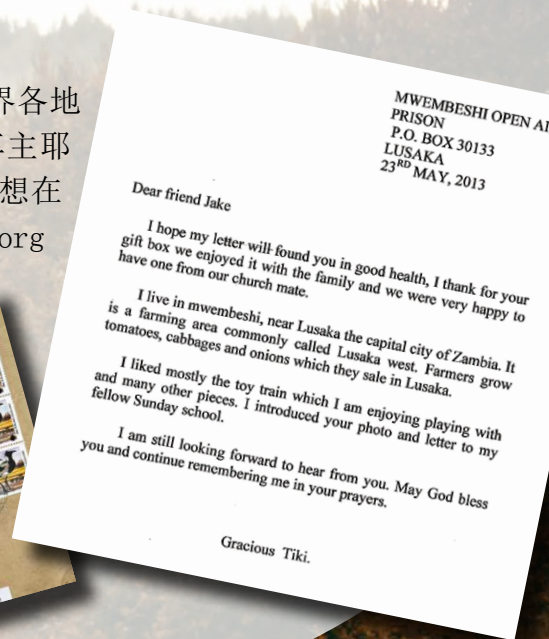 界各地
主耶
想在
org
MWEMBESHI OPEN
PRISON
P.O. BOX 30133
LUSAKA
23RD MAY, 2013
Dear friend Jake
I hope my letter will found you in good health, I thank for your
gift box we enjoyed it with the family and we were very happy to
have one from our church mate.
I live in mwembeshi, near Lusaka the capital city of Zambia. It
is a farming area commonly called Lusaka west. Farmers grow
tomatoes, cabbages and onions which they sale in Lusaka.
I liked mostly the toy train which I am enjoying playing with
and many other pieces. I introduced your photo and letter to my
fellow Sunday school.
I am still looking forward to hear from you. May God bless
you and continue remembering me in your prayers.
Gracious Tiki.